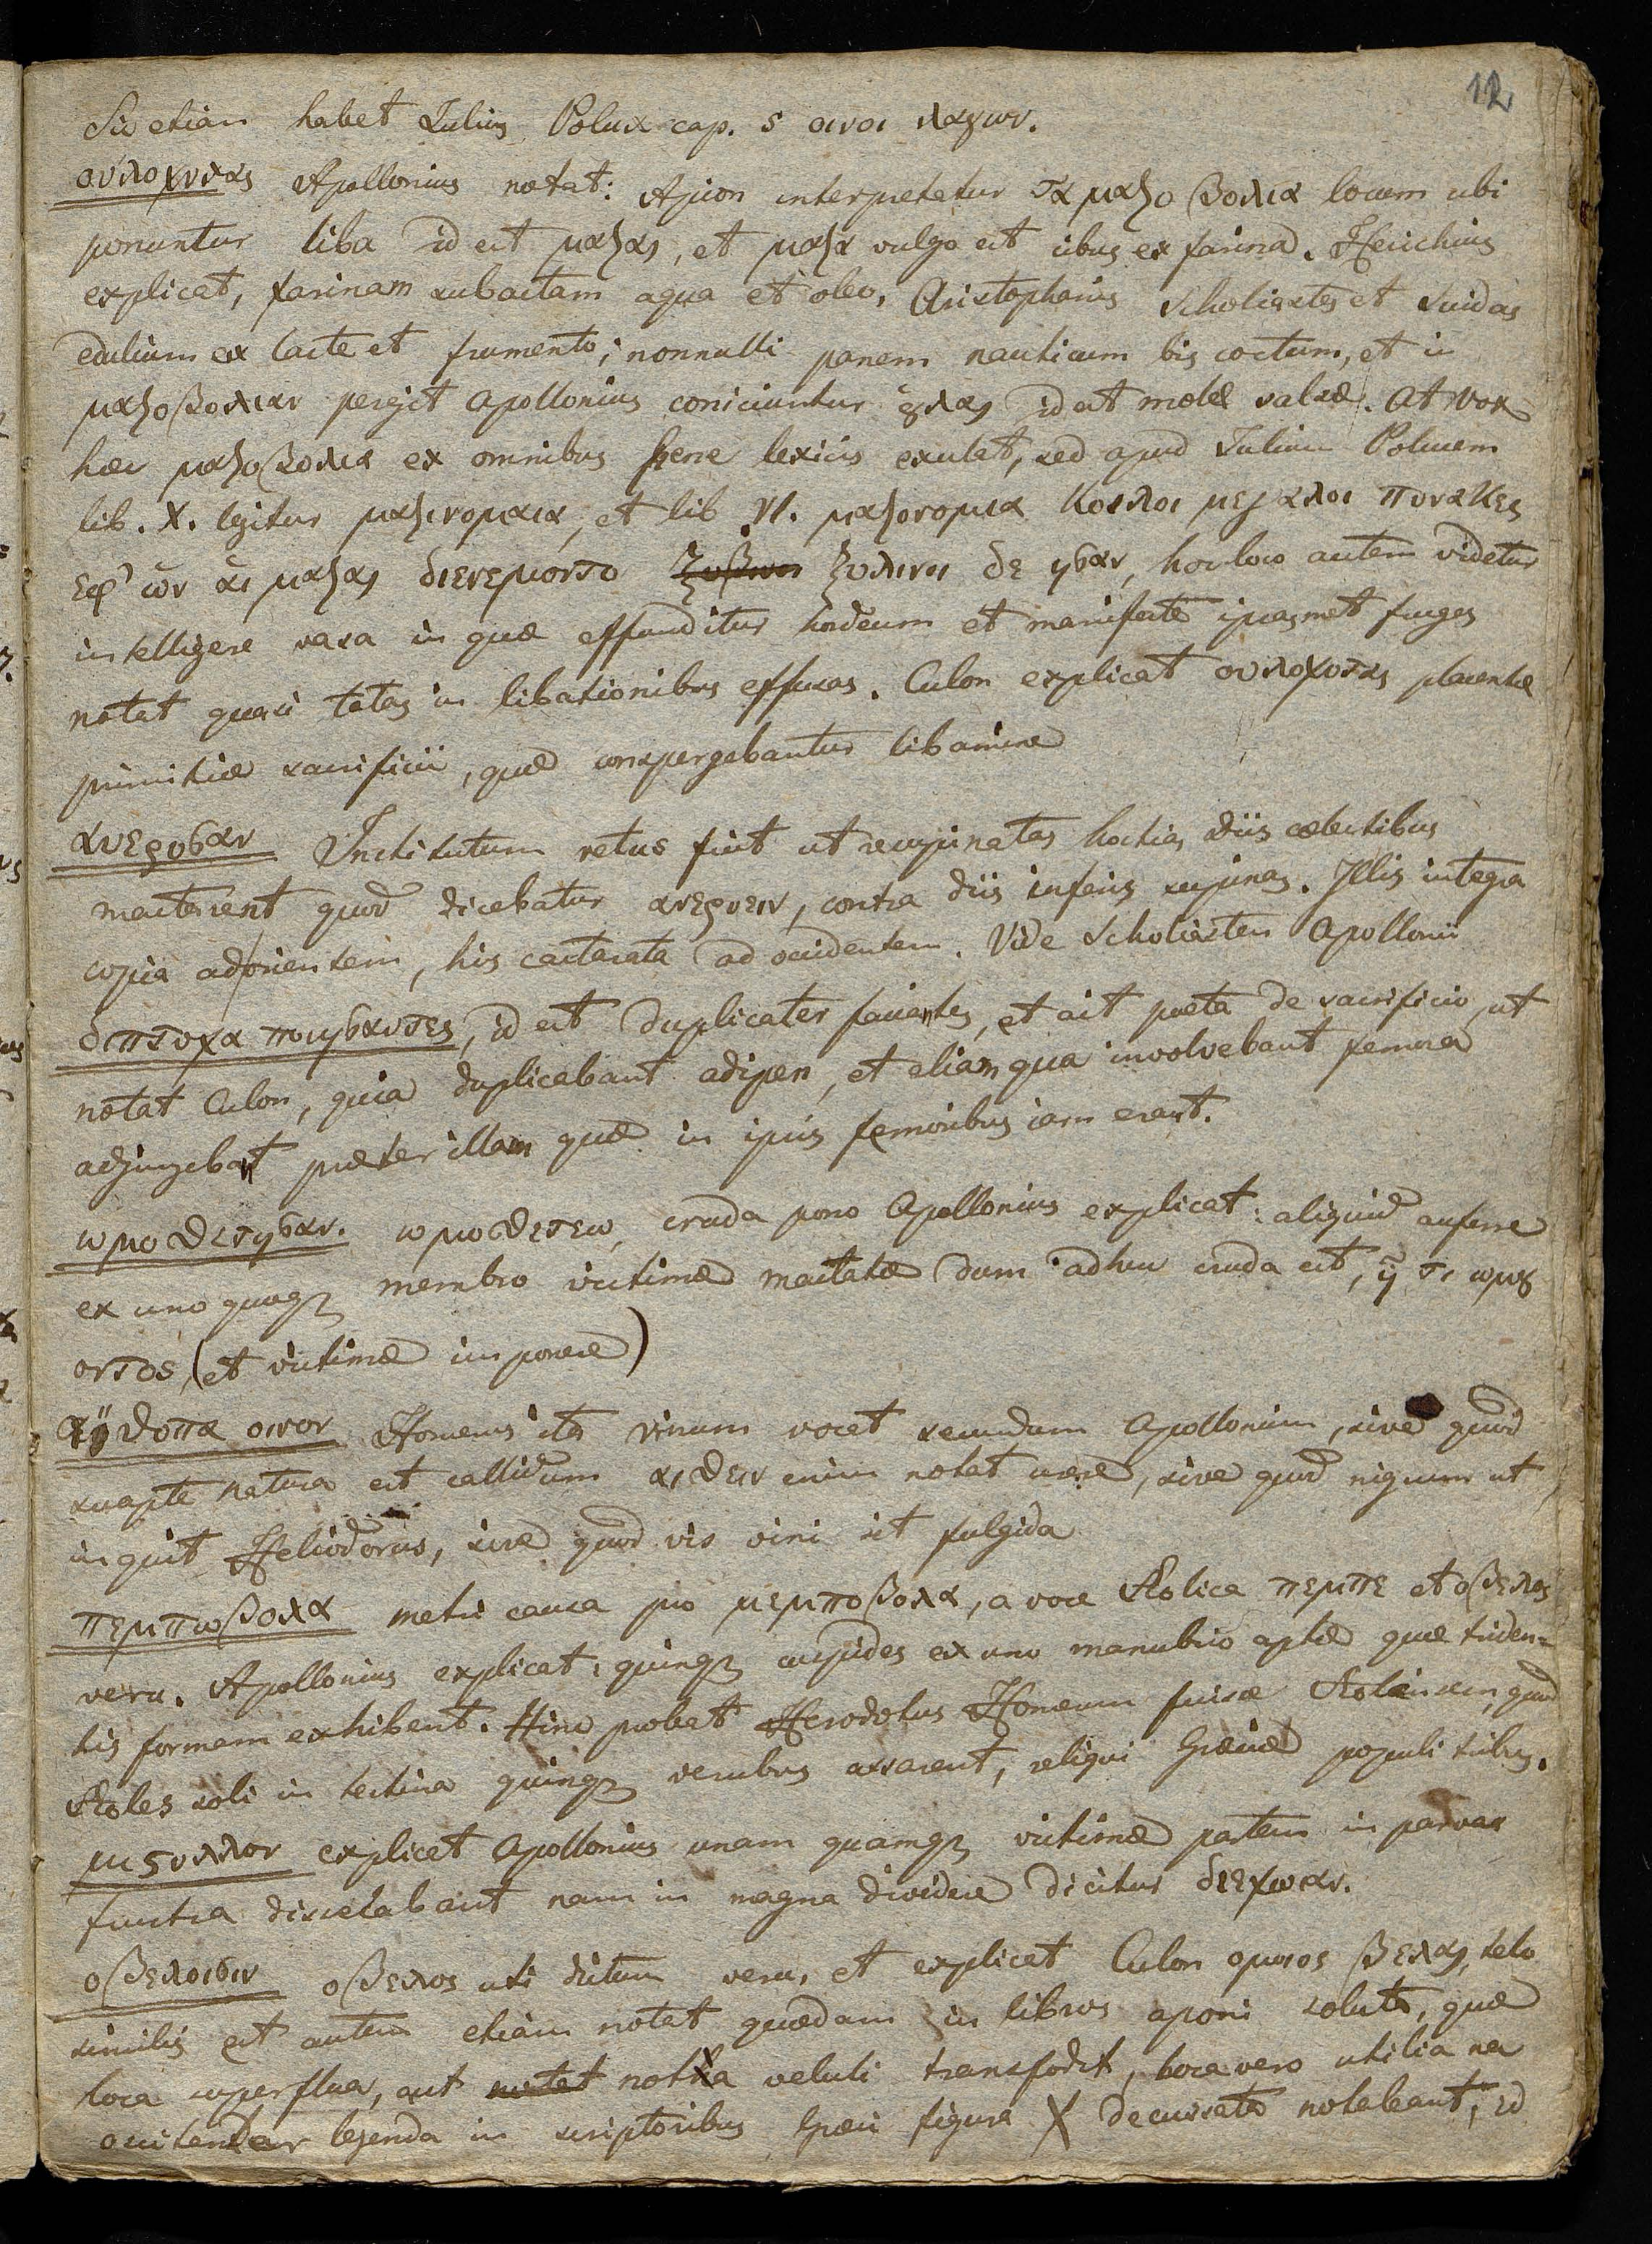 12
Sic etiam habet Iulius Polux cap. 5 οινοι λαγων.
ουλοχυτας Apollonius notat: Apion interpretatur τα μαζο βολια locum ubi
ponuntur liba id est μαζας, et μαζα vulgo est cibus ex farina. Hesichius
explicat, farinam subactam aqua et oleo, Aristophanis Scholiastes et Suidas
edulium ex lacte et frumento; nonnulli panem nauticum bis coctum, et in
μαζοβολιαν pergit Apollonius coniciuntur ȣλας id est molæ salsæ. At vox
hæc μαζοβολια ex omnibus fere lexicis exulat, sed apud Iulium Polucem
lib. X. legitur μαζινομαια, et lib VI. μαζονομια κοιλοι μεγαλοι πινακες
εφ' ὡν ἁι μαζας διενεμοντο ξυλινοι δε ησαν, hoc loco autem videtur
intelligere vasa in quæ effunditur hordeum et manifeste ipsasmet fruges
notat quasi totas in libationibus effusas. Culon explicat ουλοχυτας placentæ
primitiæ sacrificii, quæ conspergebantur libamine
ανερυσαν Institutum vetus fuit ut resupinatas hostias Diis cælestibus
mactarent quod dicebatur ανερυειν, contra diis inferis supinas. Illis integra
copia ad orientem, his castrata ad occidentem. Vide Scholiasten Apollonii
διπτυχα ποιησαντες, id est duplicater facientes, et ait poeta de sacrificio, ut
notat Culon, quia duplicabant adipem, et etiam qua involvebant femora
adjungebant præter illam quæ in ipsis femoribus iam erant.
ωμοθετησαν. ωμοθετεω, cruda pono Apollonius explicat: aliquid auferre
ex uno quoqꝫ membro victimæ mactatæ dum adhuc cruda est, ἤ τι ωμȣ
οντος (et victimæ imponere)
αιθοπα οινον Homerus ita vinum vocat secundum Apollonium, sive quod
suapte natura est callidum αιθειν enim notat urere, sive quod nigrum ut
inquit Heliodorus, sive quod vis vini sit fulgida
πεμπωβολα metri causa pro μεμποβολα, a voce Æolica πεμπε et οβελος
veru. Apollonius explicat: quinqꝫ cuspides ex uno manubrio aptæ quæ triden=
tis formam exhibent. Hinc probat Herodotus Homerum fuisse Æoliensem, quod
Æoles soli in textina quinqꝫ verubus assarent, reliqui Græciæ populi tribus.
μιςυλλον explicat Apollonius unam quamqꝫ victimæ partem in parvas
frustra dissecabant nam in magna dividere dicitur διεχωαν.
οβελοισιν οβελος uti dictum veru, et explicat Culon ομοιος βελας, telo
similis est autem etiam notat quædam in libros aponi soluta, quæ
loca superflua, aut notat nota veluti transfodit, loca vero utilia nec
legenda in scriptoribus Græci figura X decussata notabant, id